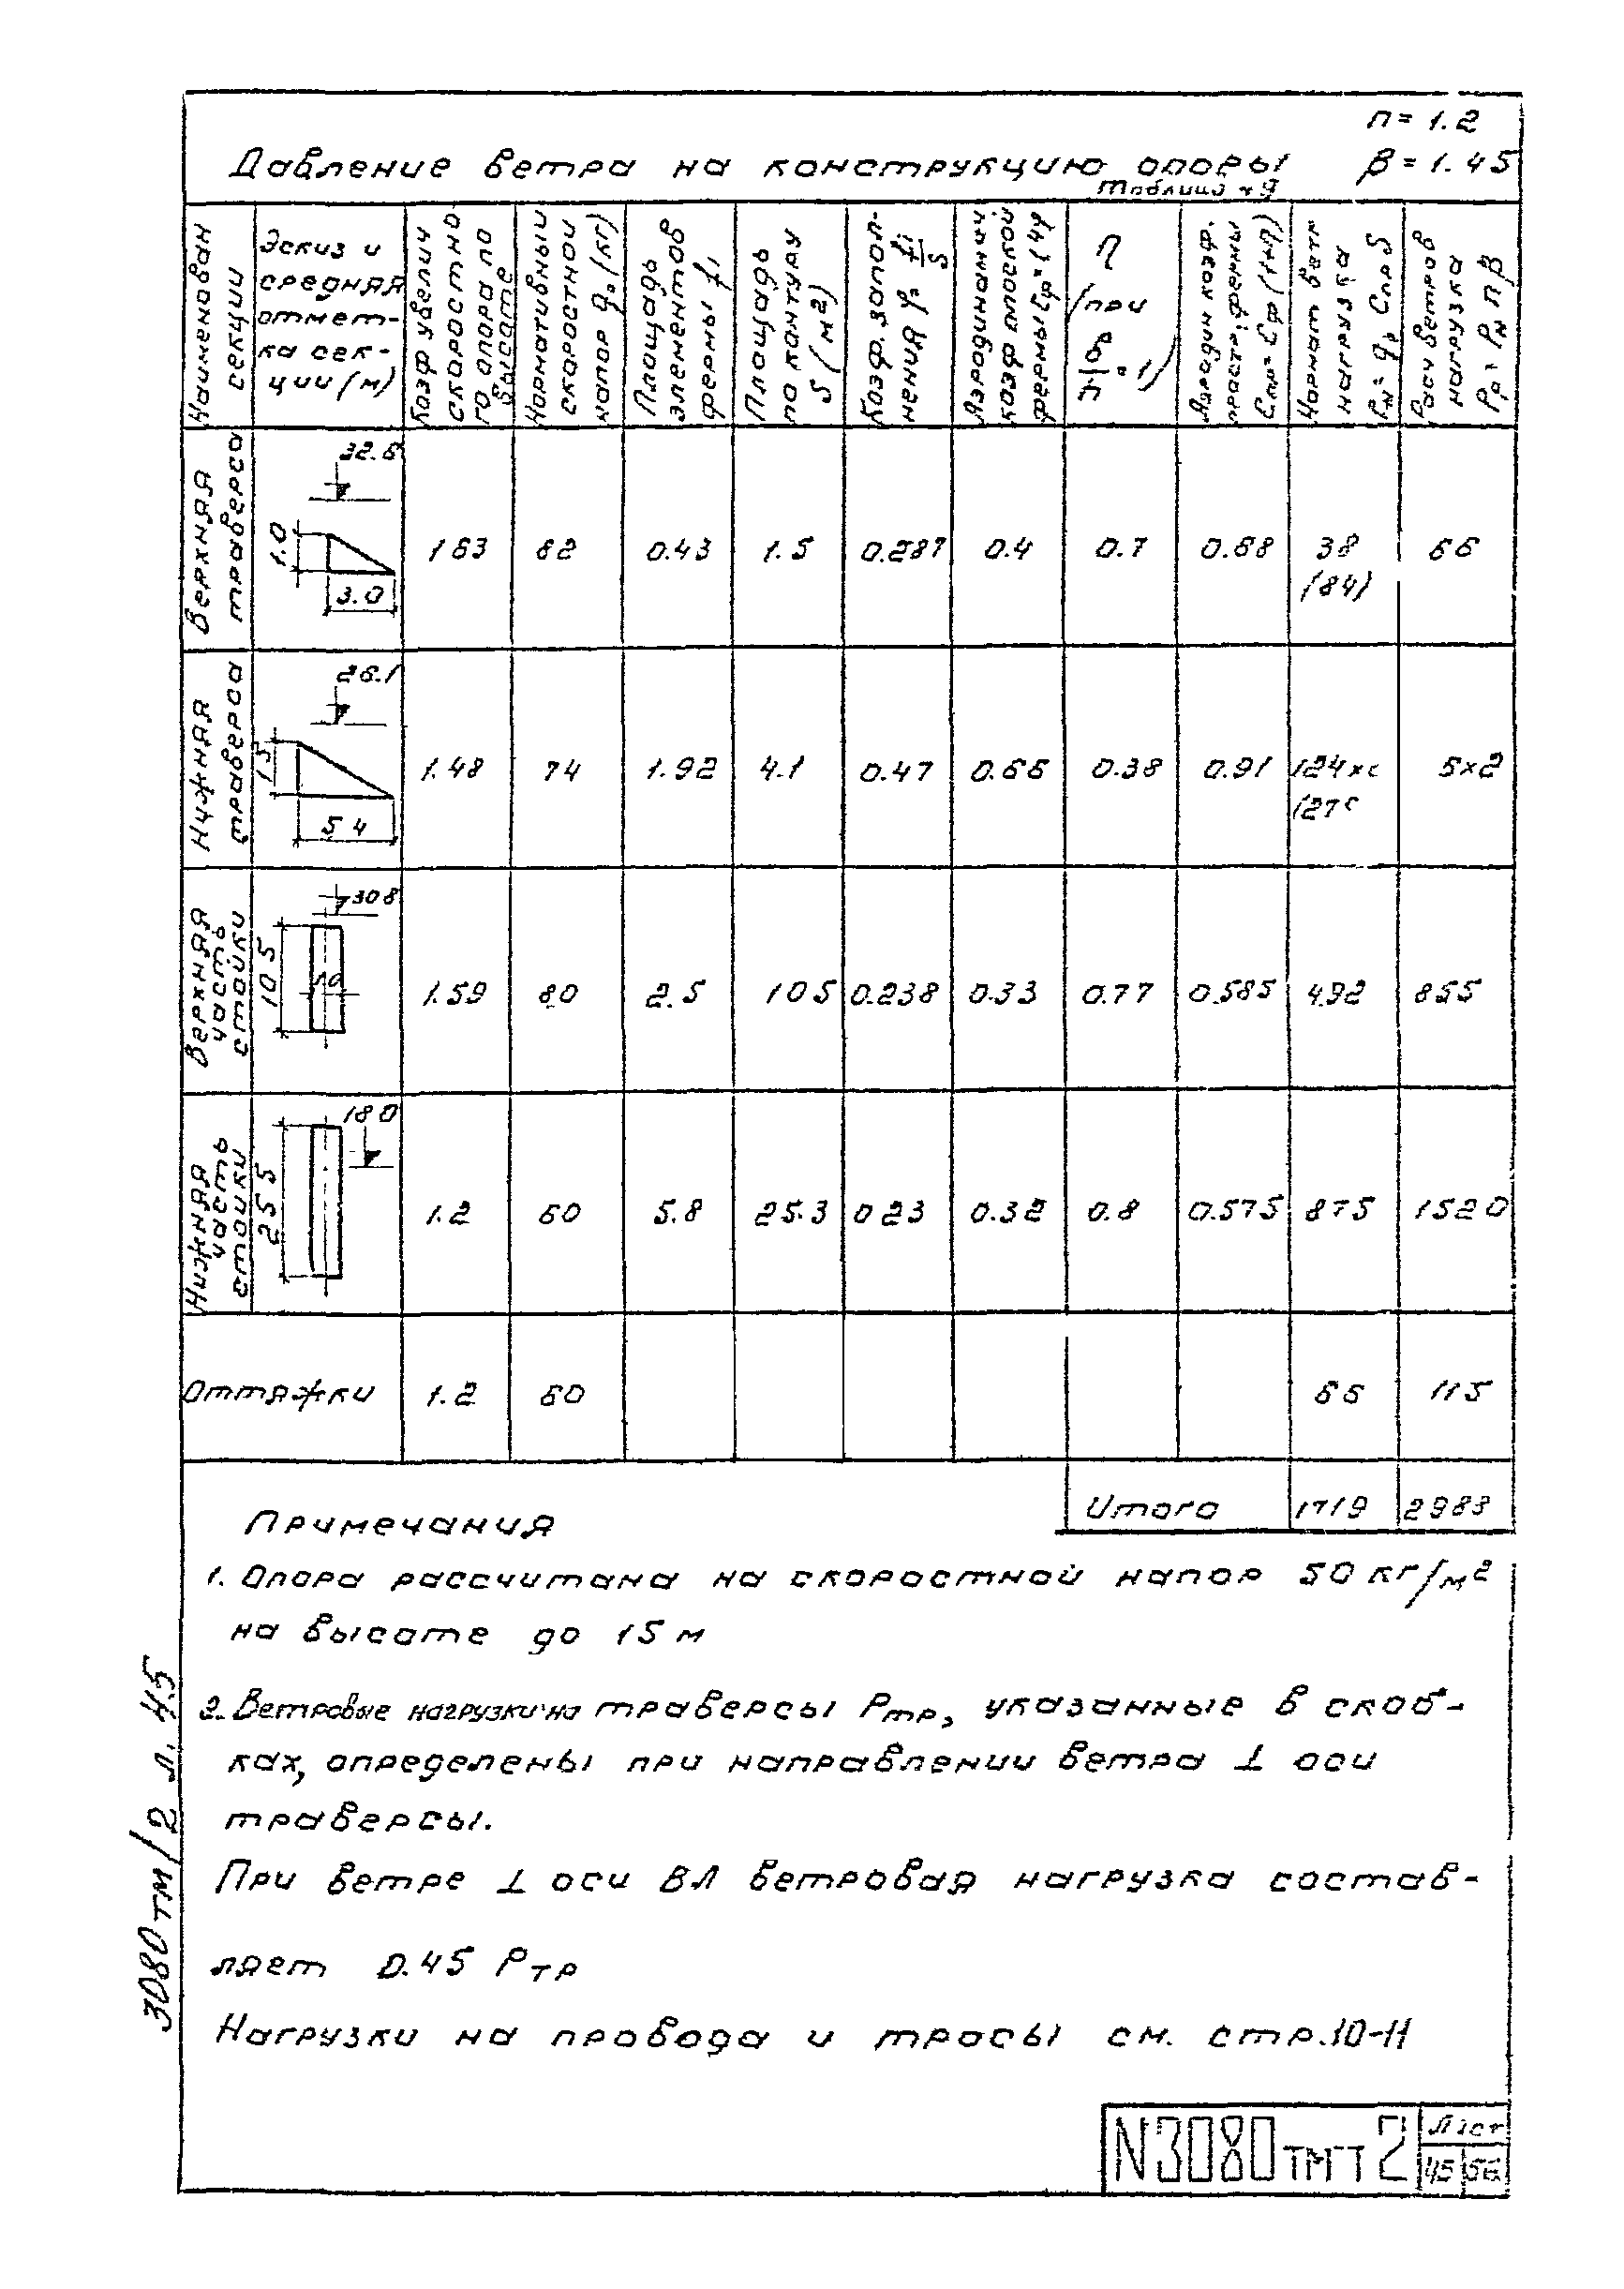 n = 1.2
Давление ветра на конструкцию опоры β = 1.45
таблица
Наименован секции
Эскиз и средняя отмет-ка сек-ции (м)
Коэф увелич скоростно го опора по высоте
Нормативный скоростной напор q₀ (кг)
Площадь элементов фермы fᵢ
Площадь по контуру S (м2)
Коэф. запол-нения φ = fi/S
Аэродинамич коэф плоской фермы Cφ = 1.4φ
η (при b/h = 1)
Аэродин коэф. простр. фермы Cпр = Cφ (1+η)
Нормат ветр нагрузка Pн = q₀ Cпр S
Расч ветров нагрузка Pр = Pн n β
Верхняя траверса 32.6 1.0 3.0 163 82 0.43 1.5 0.287 0.4 0.7 0.68 38 66
(84)
Нижняя траверса 26.1 1.5 5 4 1.48 74 1.92 4.1 0.47 0.66 0.38 0.91 124
Верхняя часть стойки 308 10 5 1.0 1.59 80 2.5 105 0.238 0.33 0.77 0.585 492 855
Нижняя часть стойки 180 25 5 1.2 60 5.8 25.3 0 23 0.32 0.8 0.575 875 1520
Оттяжки 1.2 60 66 115
Итого 1719 2983
Примечания
1. Опора рассчитана на скоростной напор 50 кг/м2
на высоте до 15 м
2. Ветровые нагрузки на траверсы Pтр, указанные в скоб-
ках, определены при направлении ветра ⊥ оси
траверсы.
При ветре ⊥ оси ВЛ ветровая нагрузка состав-
ляет 0.45 Pтр
Нагрузки на провода и тросы см. стр.10-11
3080тм/2 л. 45
N3080тмт2 Лист
45 56